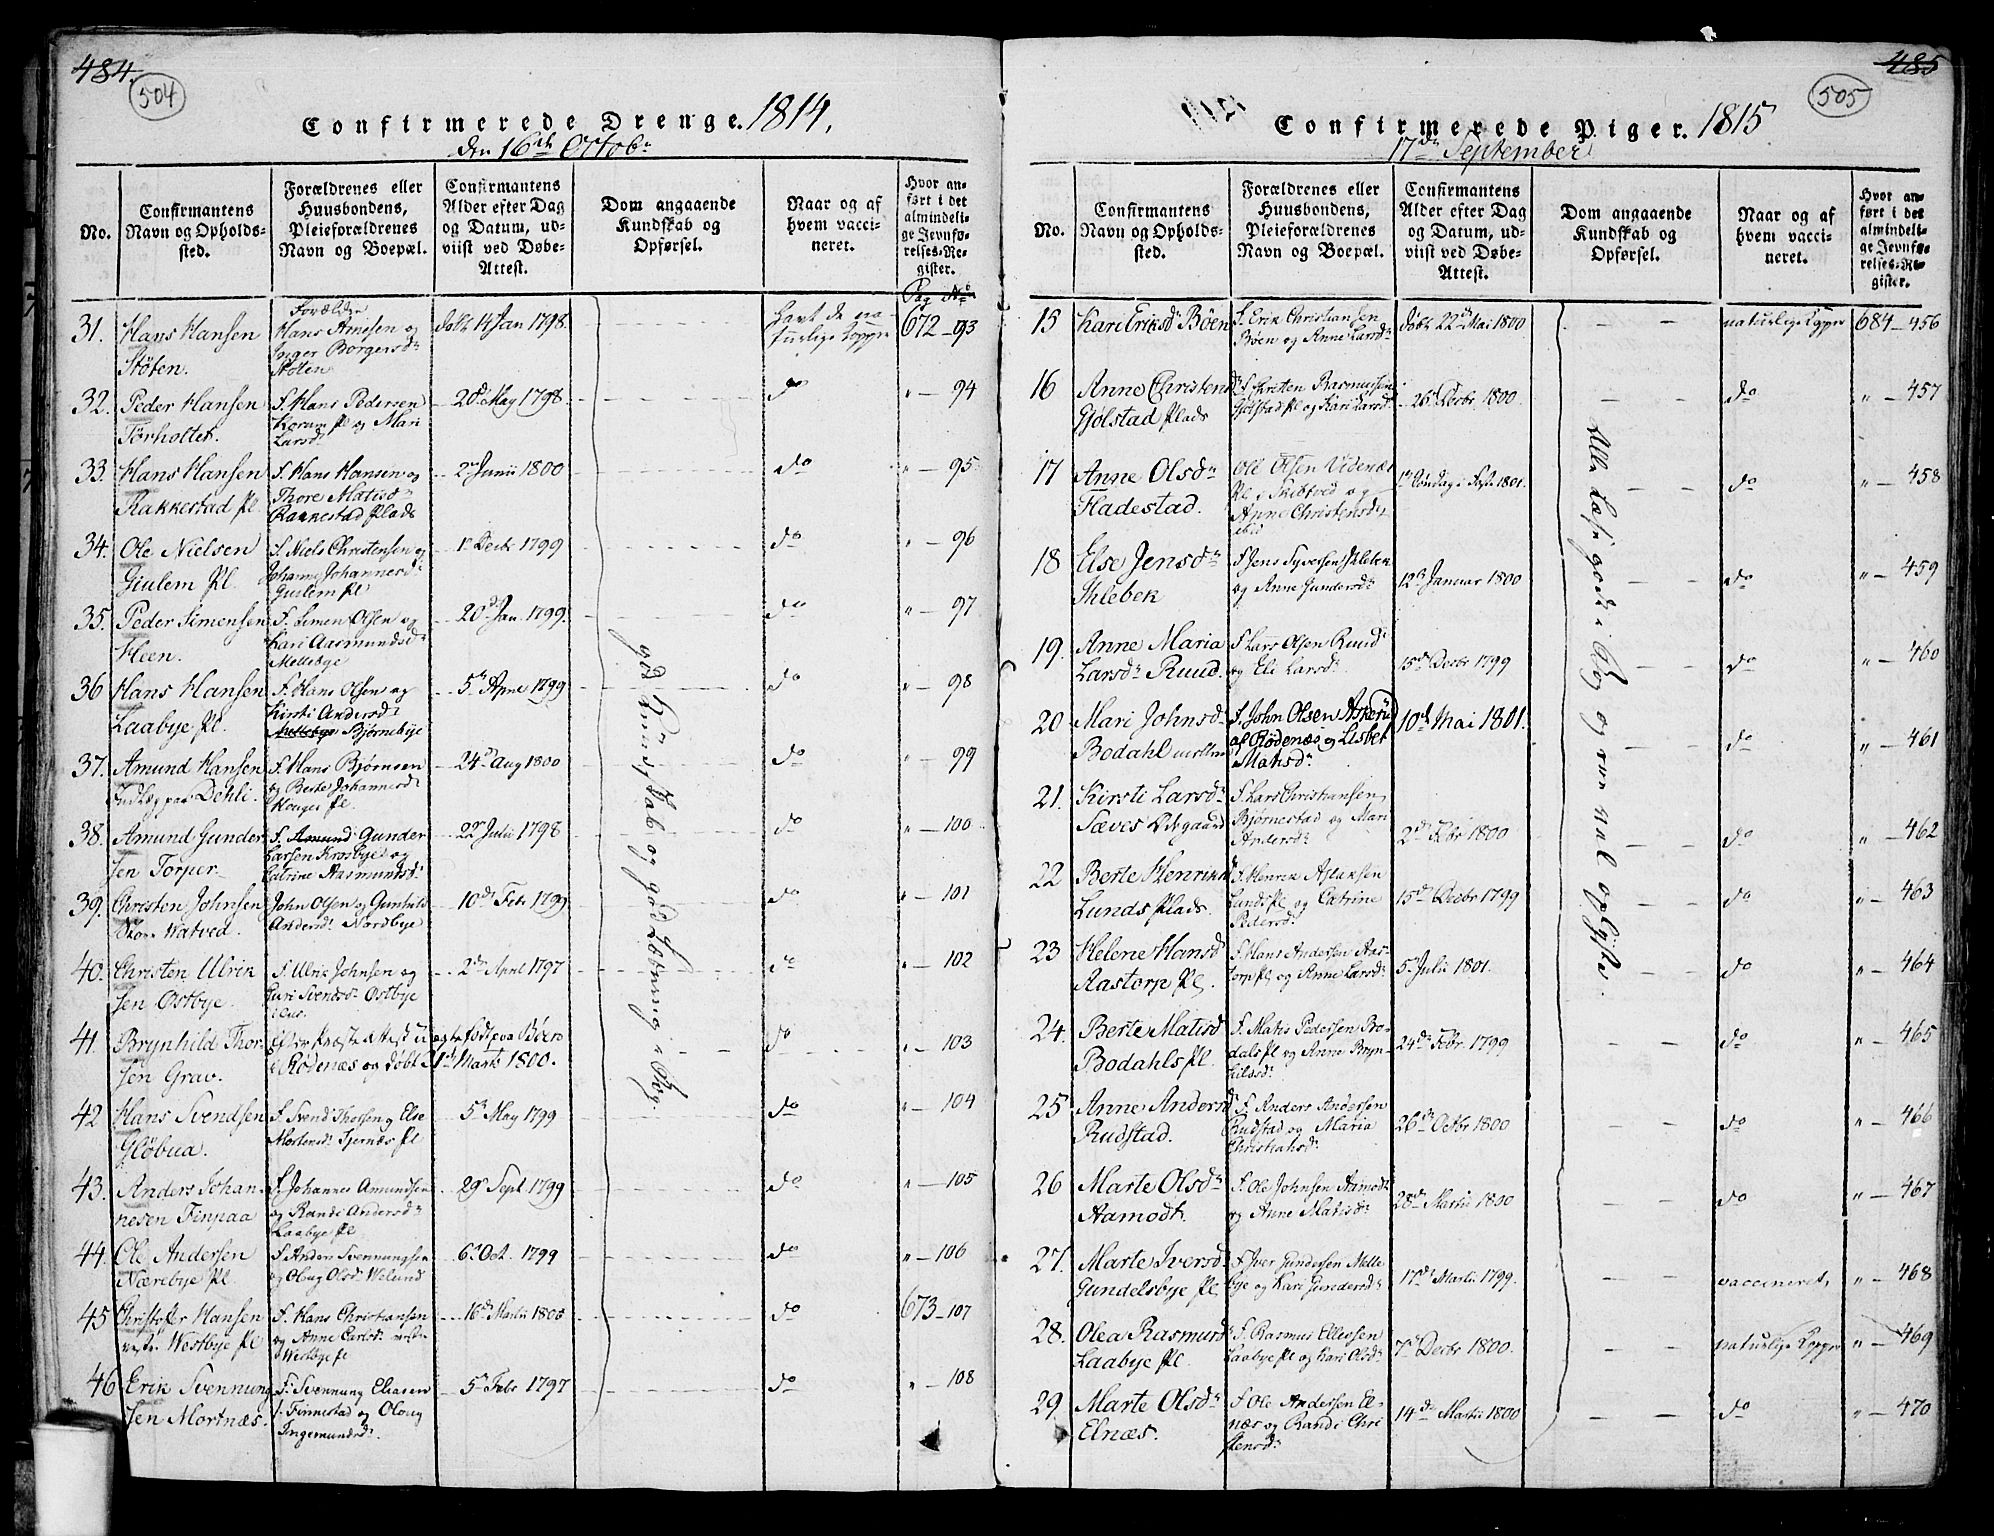 484.
504
Confirmerede Drenge. 1814.
den 16de Octobr
No.
Confirmantens
Navn og Opholds-
sted.
Forældrenes eller
Huusbondens,
Pleieforældrenes
Navn og Boepæl.
Confirmantens
Alder efter Dag
og Datum, ud-
viist ved Døbe-
Attest.
Dom angaaende
Kundskab og
Opførsel.
Naar og af
hvem vacci-
neret.
Hvor an-
ført i det
almindeli-
ge Jevnfø-
relses-Re-
gister.
Pag No
31. Hans Hansen
Støten.
Forældr
Hans Arnesen og
Inger Borgersdr
Støten
døbt 14 Jan 1798.
Havt de na-
turlige Kopper
672 - 93
32. Peder Hansen
Tørholter.
F. Hans Pedersen
Korum Pl og Mari
Larsdr
20d May 1798
do
" - 94
33. Hans Hansen
Rakkestad Pl
F. Hans Hansen og
Thore Matisdr
Rakkestad Plads
2d Junii 1800
do
" - 95
34. Ole Nielsen
Giulem Pl.
F. Niels Christensen og
Johanne Johannesdr
Giulem Pl
1d Decbr 1799
do
" - 96
35. Peder Simensen
Heen.
F. Simen Olsen og
Kari Aasmundsdr
Mellebye
20d Jan. 1799.
do
" - 97
36 Hans Hansen
Laabye Pl.
F. Hans Olsen og
Kirsti Andersdr
Mellebye Bjørnebye
5d Apr 1799
do
" - 98
37. Amund Hansen
Indlæg paa Dehli.
F. Hans Bjørnsen
og Berte Johannesdr
Houger Pl.
24d Aug 1800
do
" - 99
38. Amund Gunder
sen Torper
F. Amund Gunder
Larsen Krosbye og
Catrine Aasmundsdr
22d Julii 1798
do
" - 100
39. Christen Johnsen
Store Watved.
John Olsen og Gunhild
Andersdr Nordbye
10d Febr 1799
do
" - 101
40. Christen Ulrik
sen Ostbye.
F. Ulrik Johnsen og
Guri Svendsdr Ostbye
2d April 1797
do
" - 102
41. Brynhild Thor-
sen Grav.
Efter Præste Attest uægte født paa Bøen
i Rødenæs og døbt 1d Marts 1800.
do
" - 103
42 Hans Svendsen
Gløbua.
F. Svend Thosen og Else
Mortensdr Tjernæs Pl
5d May 1799
do
" - 104
43. Anders Johan-
nesen Finpaa
F. Johannes Amundsen
og Randi Andersdr
Laabye Pl
29d Sept 1799
do
" - 105
44. Ole Andersen
Nærebye Pl.
F. Anders Svennungsen
og Oloug Olsdr Welund
6d Oct. 1799
do
" - 106
45 Christoffer Hansen
vestr Westbye Pl
F. Hans Christiansen
og Anne Carlsdr vestr
Westbye Pl
16d Martii 1800
do
673 - 107
46 Erik Svennung
sen Mortnæs.
F. Svennung Eliasen
i Finnestad og Oloug
Ingemundsdr
5d Febr 1797
do
" - 108
god Kundskab og god Læsning i Bog.
485
505
Confirmerede Piger. 1815
17de September
No.
Confirmantens
Navn og Opholds-
sted.
Forældrenes eller
Huusbondens,
Pleieforældrenes
Navn og Boepæl.
Confirmantens
Alder efter Dag
og Datum, ud-
viist ved Døbe-
Attest.
Dom angaaende
Kundskab og
Opførsel.
Naar og af
hvem vacci-
neret.
Hvor an-
ført i det
almindeli-
ge Jevnfø-
relses-Re-
gister.
15 Kari Eriksdr Böen
F. Erik Christiansen
Böen og Anne Larsdr
Døbt 22d Mai 1800
naturlige Kopper
684 - 456
16 Anne Christensdr
Gjølstad Plads
F. Christen Rasmussen
Gjølstad Pl og Kari Larsdr
26d Decbr 1800
do
" - 457
17 Anne Olsdr
Hadestad.
Ole Olsen Videnæs
Pl i Skibtved og
Anne Christensdr
ibid
1d Søndag i Sept 1801.
do
" - 458
18 Else Jensdr
Ihlebek
F Jens Syversen Ihlebek
og Anne Gundersdr
12d Januar 1800
do
" - 459
19. Anne Maria
Larsdr Ruud.
F Lars Olsen Ruud
og Eli Larsdr
15d Decbr 1799
do
" - 460
20. Mari Johnsdr
Bodahl mellem
F. John Olsen Askerud
af Rødenæs og Lisbet
Matisdr
10d Mai 1801.
do
" - 461
21. Kirsti Larsdr
Sæves Ødegaard
F. Lars Christiansen
Bjørnestad og Mari
Andersdr
2d Febr 1800
do
" - 462
22 Berte Henriksdr
Lunds Plads.
F. Henrik Aslaksen
Lunds Pl og Catrine
Pedersdr
15d Decbr 1799
do
" - 463
23 Helene Hansdr
Aastorp Pl.
F. Hans Andersen Aas-
torp Pl og Anne Larsdr
5d Julii 1801.
do
" - 464
24. Berte Matisdr
Bodahls Pl.
F. Matis Pedersen Bo-
dals Pl og Anne Bryn-
hildsdr
24d Febr 1799
do
" - 465
25 Anne Andersdr
Rudstad.
F. Anders Andersen
Rudstad og Maria
Christiansdr
26d Octbr 1800
do
" - 466
26 Marte Olsdr
Aamodt.
F. Ole Johnsen Aamodt
og Anne Matisdr
28d Martii 1800
do
" - 467
27. Marte Iversdr
Gundelsbye Pl
F. Iver Gundersen Melle
bye og Kari Gundersdr
17d Martii 1799.
vaccineret,
" - 468
28. Olea Rasmusdr
Laabye Pl.
F. Rasmus Ellefsen
Laabye Pl og Kari Olsdr
7d Decbr 1800.
naturlige Kopper
" - 469
29 Marte Olsdr
Elnæs.
F Ole Andersen El-
næs og Randi Chri
stensdr
14d Martii 1800
do
" - 470
Alle læse godt i Bog og ere vel oplyste.